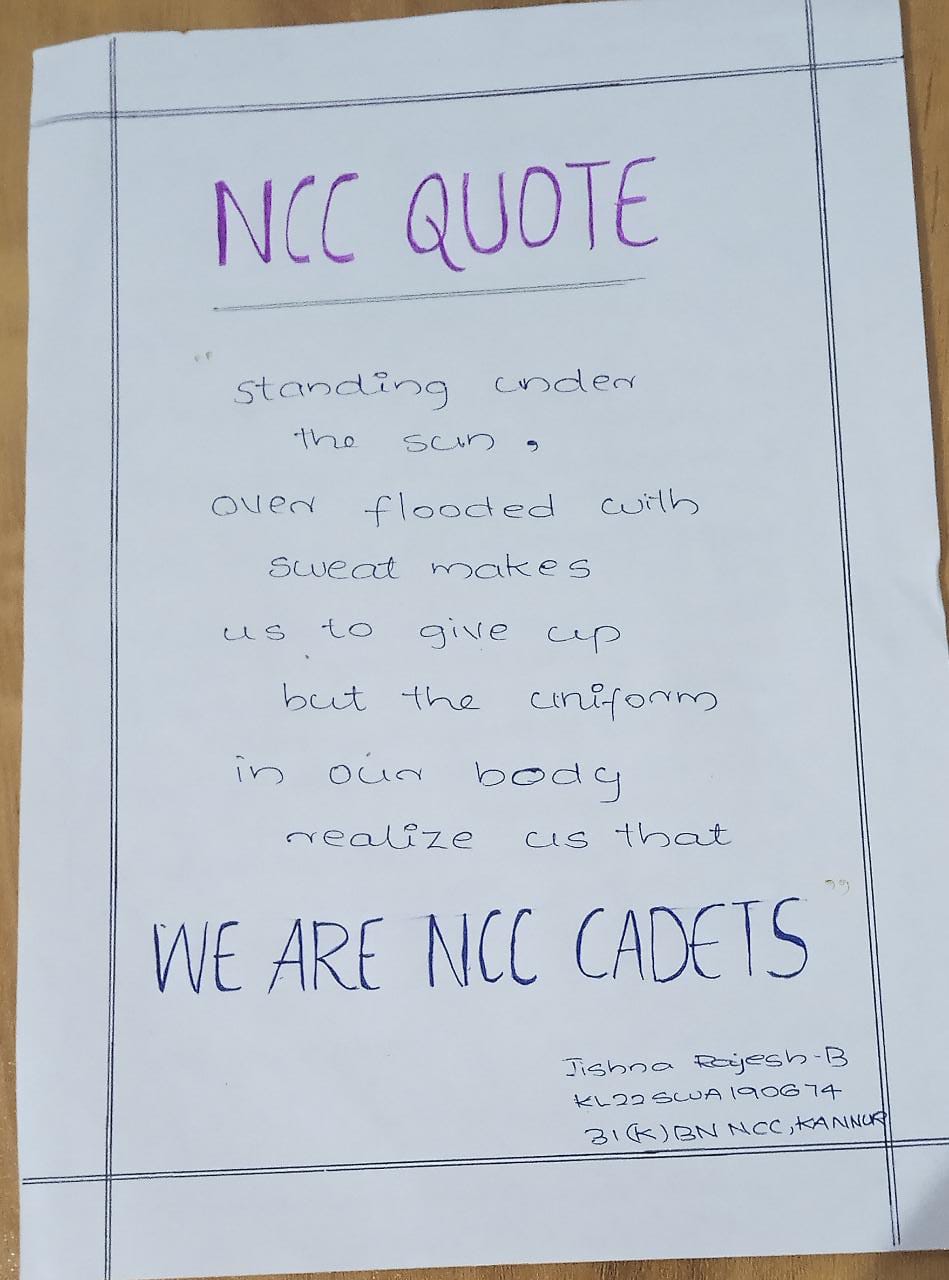 NCC QUOTE
"
standing under
the sun,
over flooded with
sweat makes
us to give up
but the uniform
in our body
realize us that
"
WE ARE NCC CADETS
Jishna Rajesh-B
KL22SWA190674
31(K)BN NCC, KANNUR